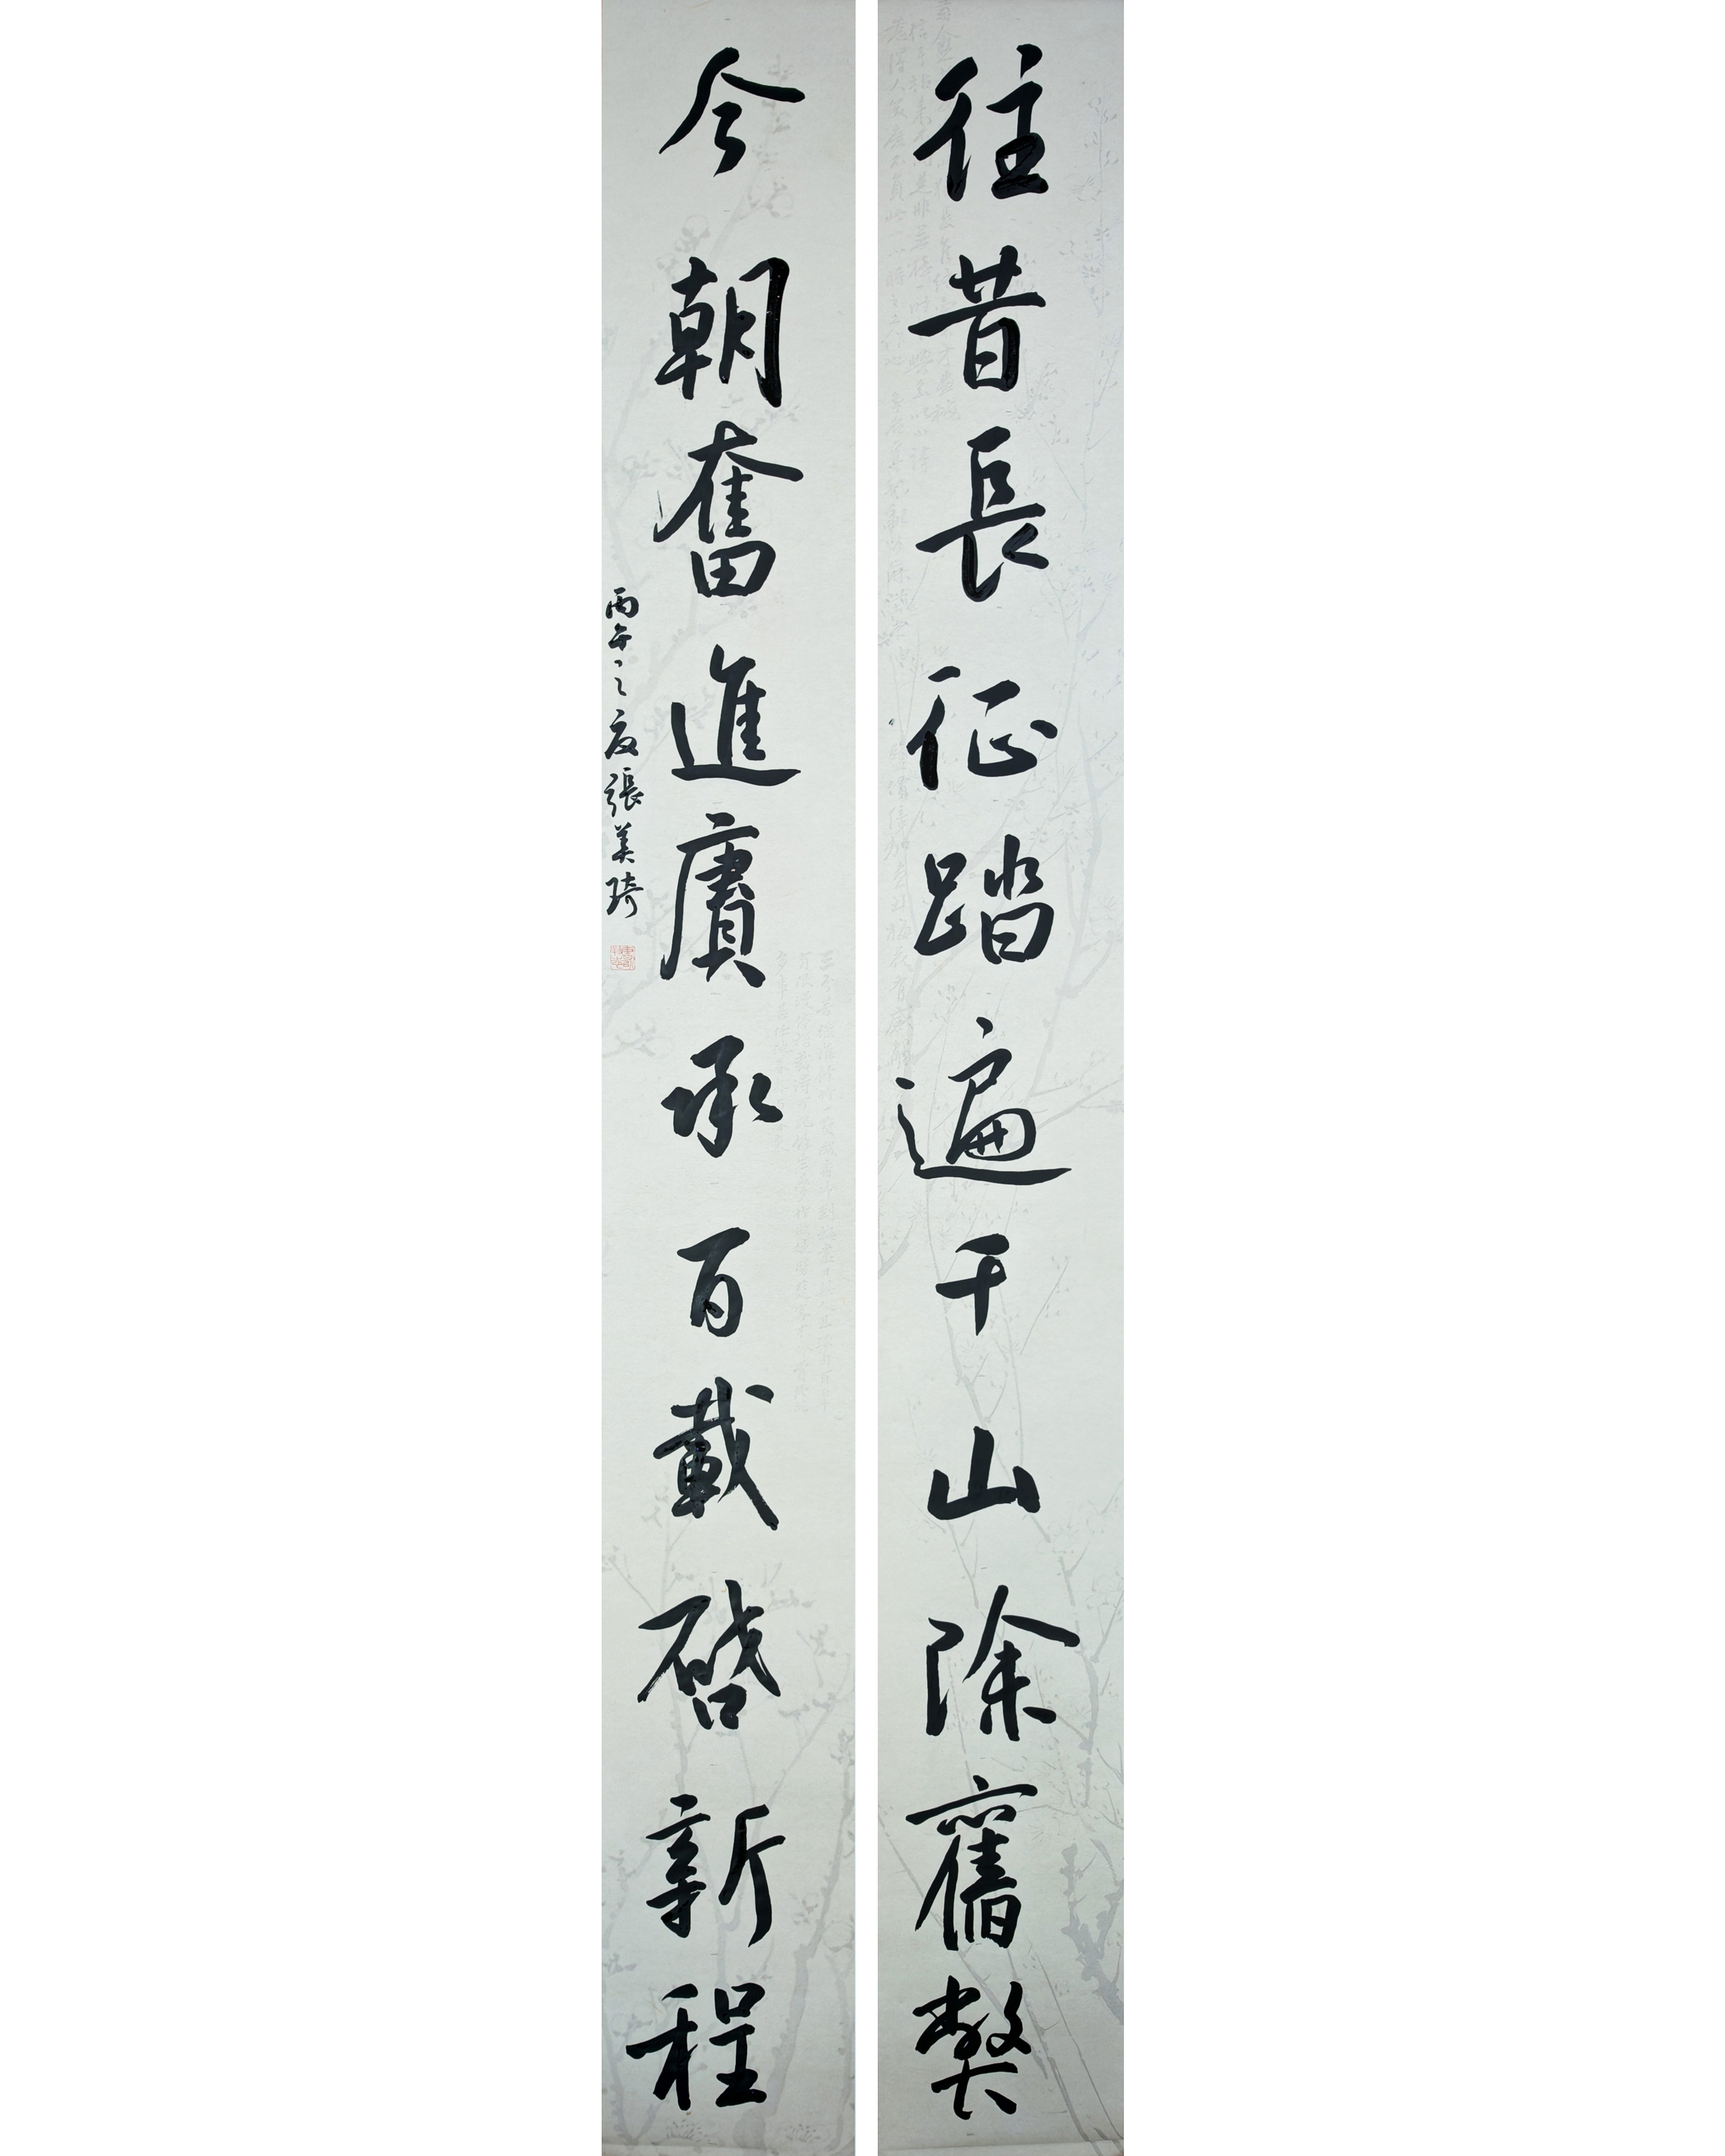 往昔長征踏遍千山除舊弊
今朝奮進賡承百載啓新程
丙午之夏張美琦